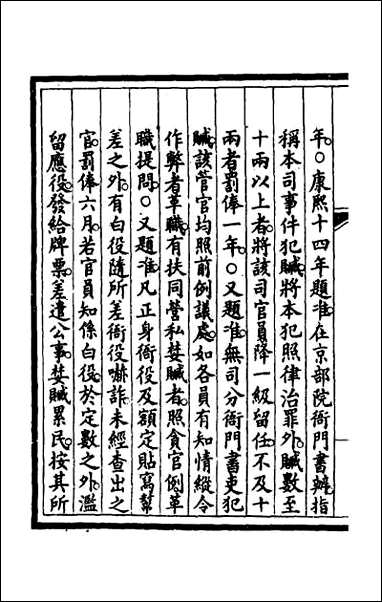 年○康熙十四年題准在京部院衙門書辦指
稱本司事件犯贓將本犯照律治罪外贓數至
十兩以上者將該司官員降一級留任不及十
兩者罰俸一年○又題准無司分衙門書吏犯
贓該管官均照前例議處如各員有知情縱令
作弊者革職有扶同營私婪贓者照貪官例革
職提問○又題准凡正身衙役及額定貼寫幫
差之外有白役隨所差衙役嚇詐未經查出之
官罰俸六月若官員知係白役於定數之外濫
留應役發給牌票差遣公事婪贓累民按其所